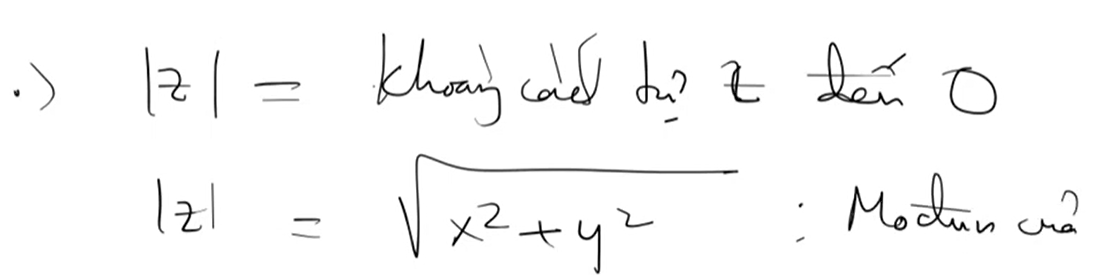 •) |z| = khoảng cách từ z đến 0
|z| = √(x² + y²) : Mođun của